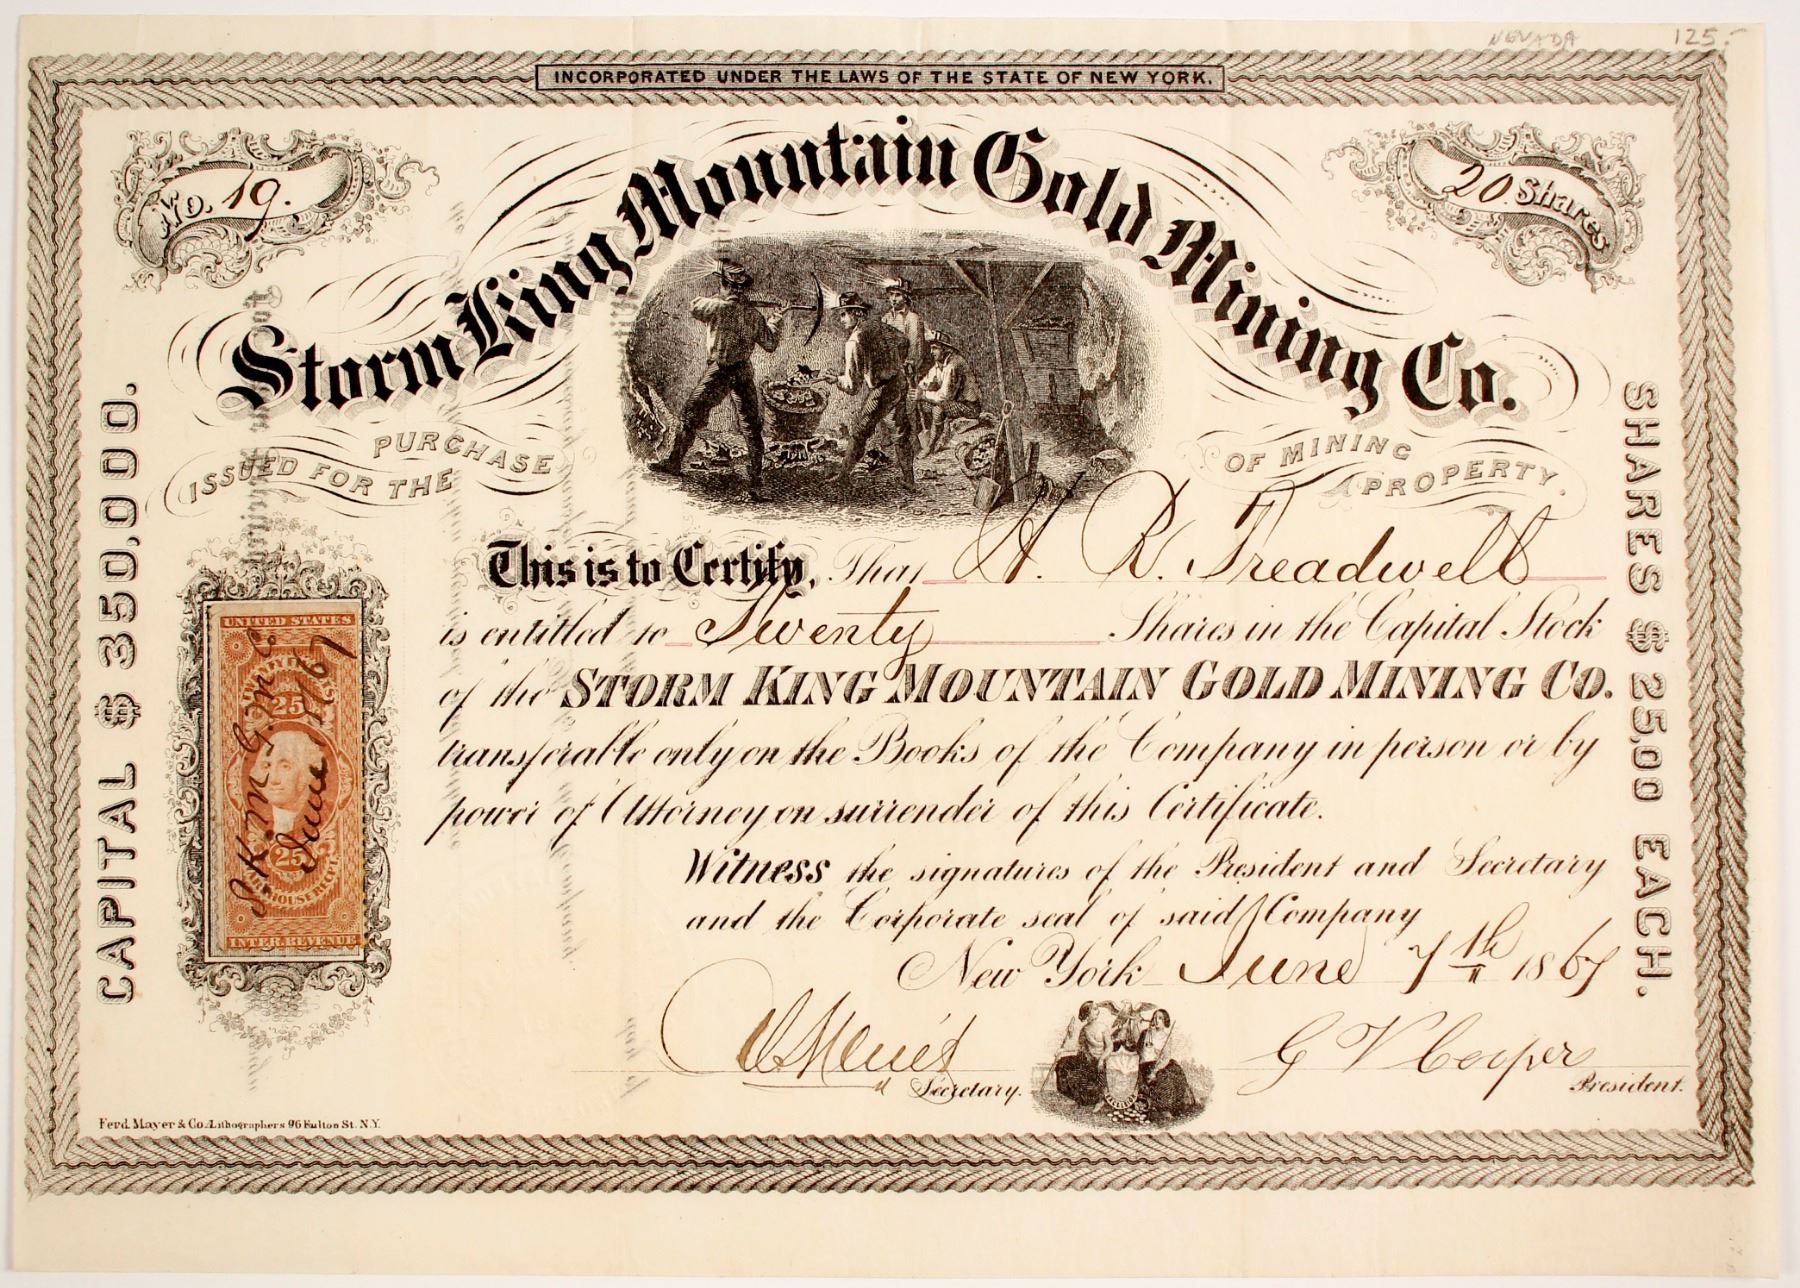 NEVADA 125.-
INCORPORATED UNDER THE LAWS OF THE STATE OF NEW YORK.
No. 19.
20 Shares
Storm King Mountain Gold Mining Co.
ISSUED FOR THE PURCHASE OF MINING PROPERTY.
CAPITAL $350,000.
SHARES $25,00 EACH.
This is to Certify, That H. R. Treadwell
is entitled to Twenty Shares in the Capital Stock
of the STORM KING MOUNTAIN GOLD MINING CO.
transferable only on the Books of the Company in person or by
power of Attorney on surrender of this Certificate.
Witness the signatures of the President and Secretary
and the Corporate seal of said Company
New York June 7th 1867
Secretary.
G V Cooper
President.
UNITED STATES
25
25
INTER. REVENUE
S.K.M.G.M.C
June 7/67
Ferd. Mayer & Co. Lithographers 96 Fulton St. N.Y.